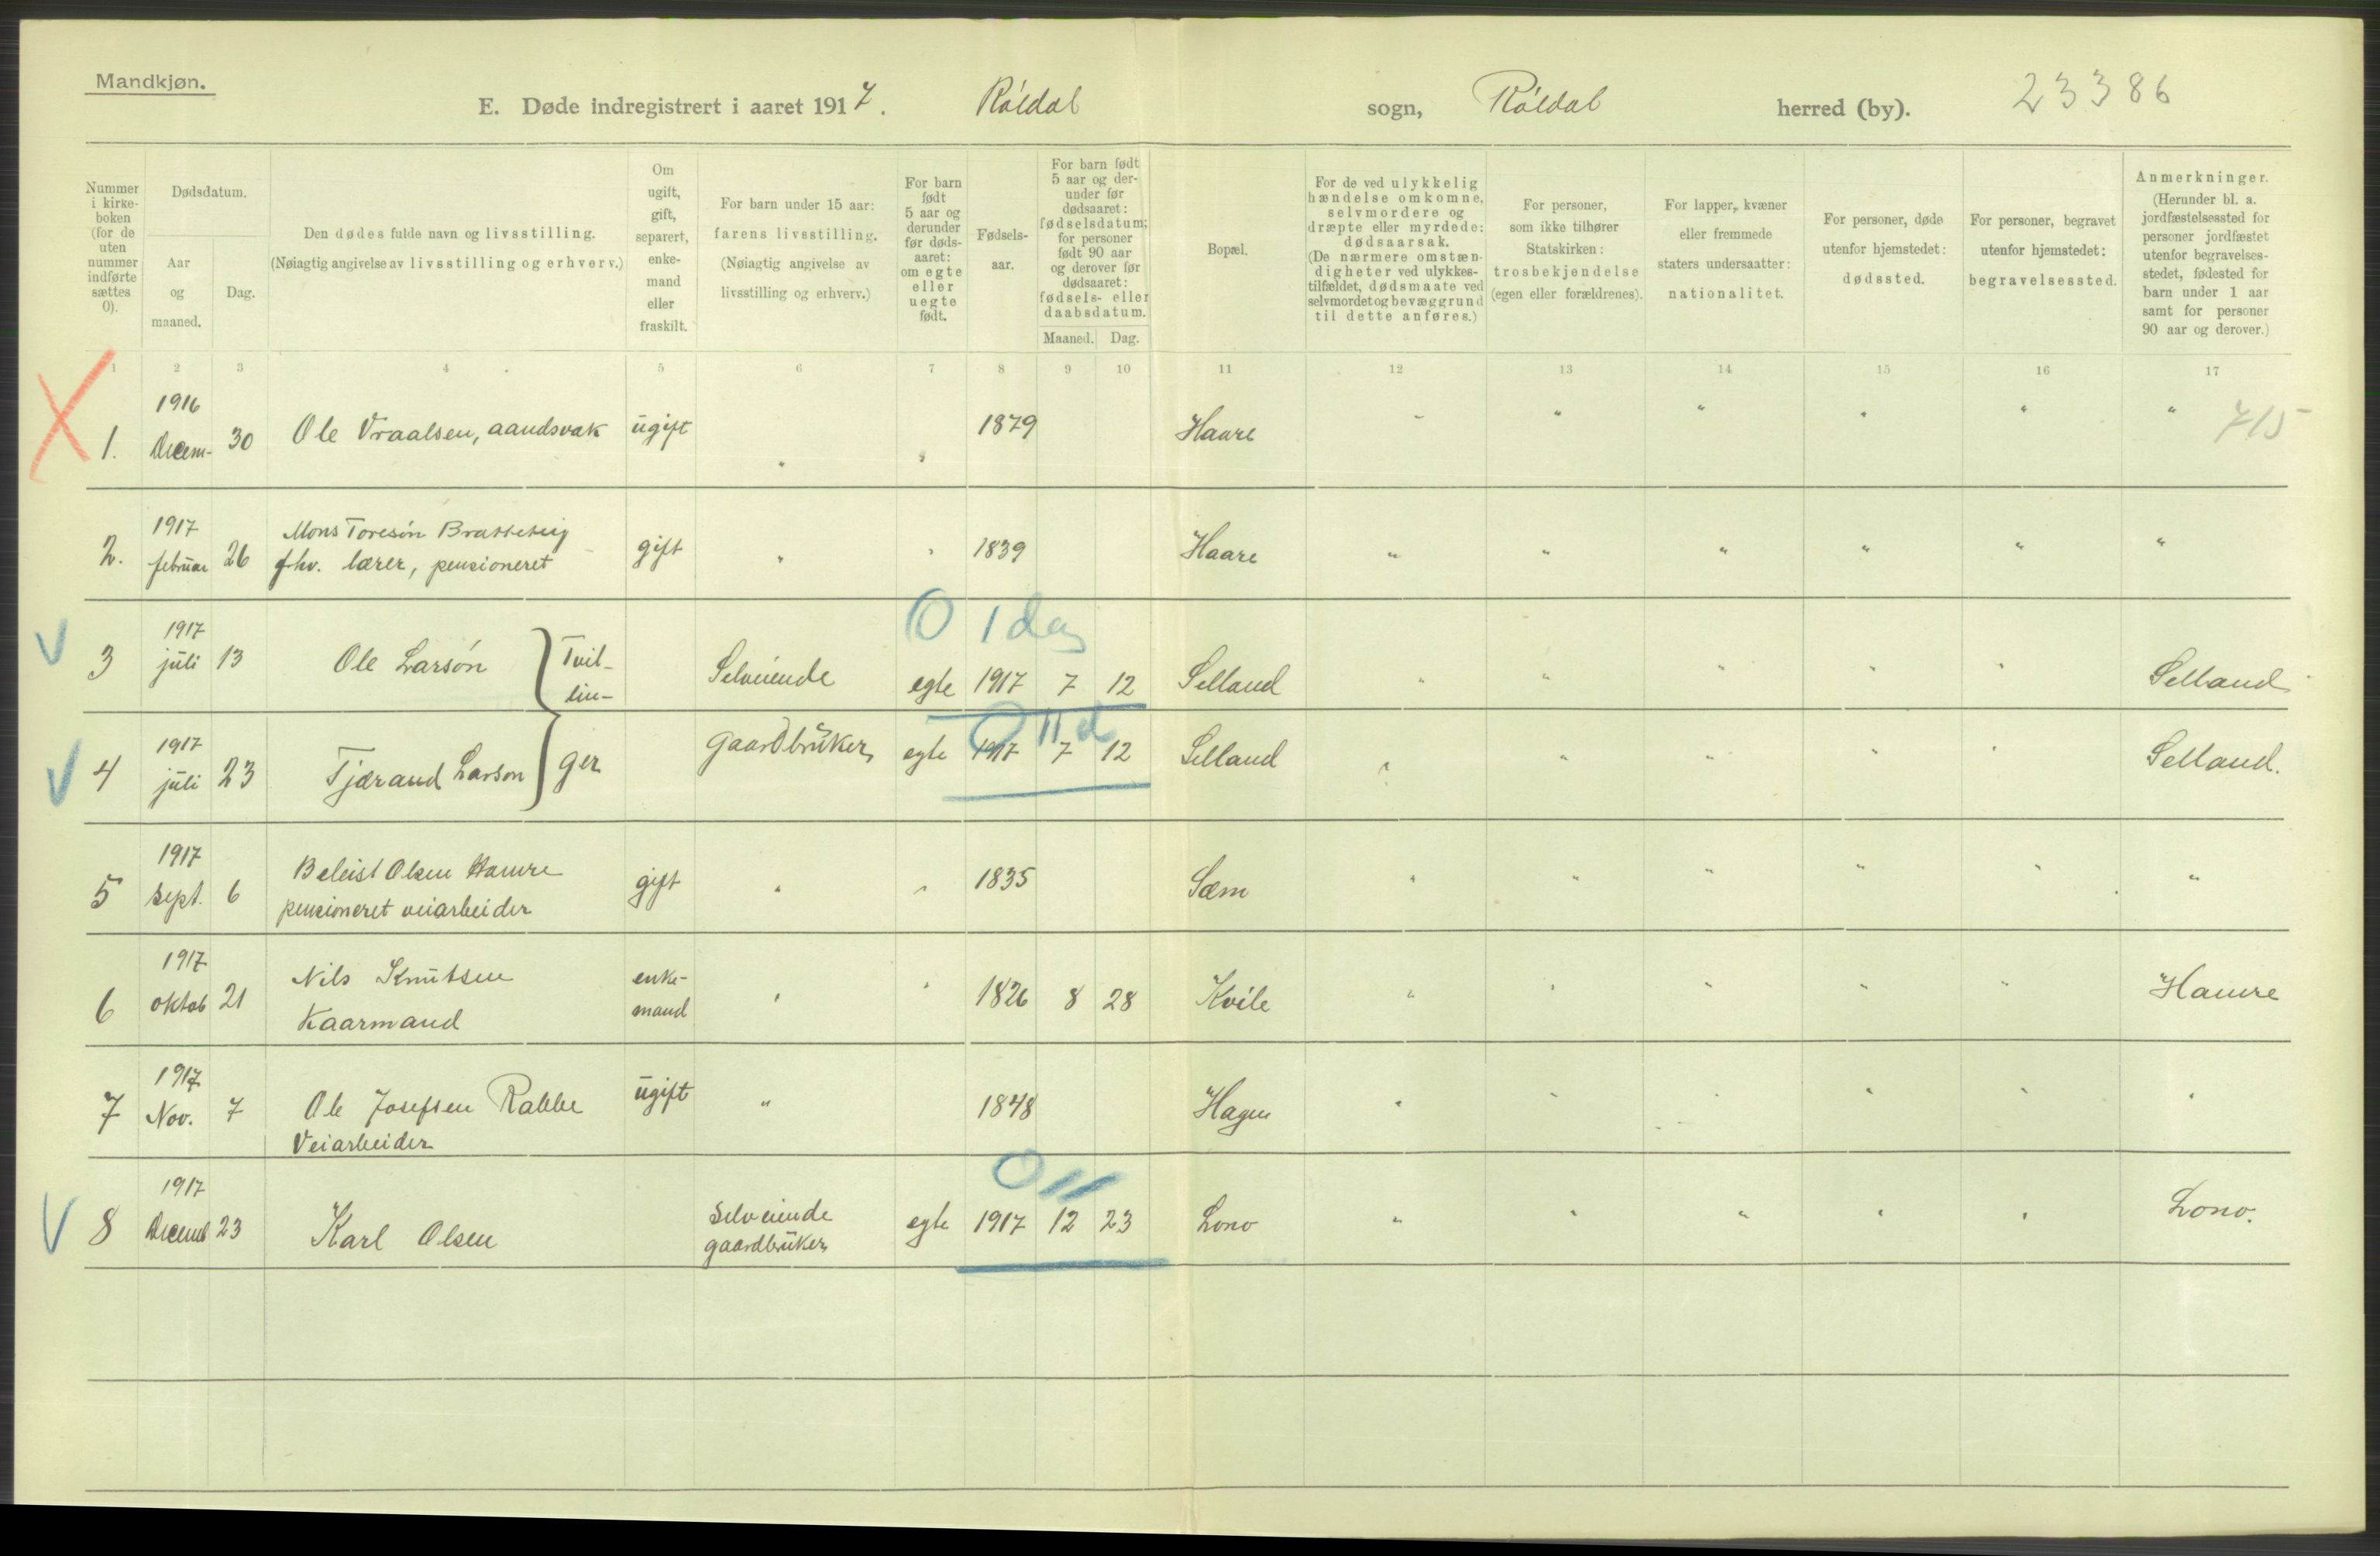 Mandkjøn.
E. Døde indregistrert i aaret 1917. Róldal sogn, Róldal herred (by). 23386
Nummer i kirkeboken (for de uten nummer indførte sættes 0).
Dødsdatum.
Aar og maaned.
Dag.
Den dødes fulde navn og livsstilling.
(Nøiagtig angivelse av livsstilling og erhverv.)
Om ugift, gift, separert, enkemand eller fraskilt.
For barn under 15 aar: farens livsstilling.
(Nøiagtig angivelse av livsstilling og erhverv.)
For barn født 5 aar og derunder før dødsaaret: om egte eller uegte født.
Fødselsaar.
For barn født 5 aar og derunder før dødsaaret: fødselsdatum; for personer født 90 aar og derover før dødsaaret: fødsels- eller daabsdatum.
Maaned. Dag.
Bopæl.
For de ved ulykkelig hændelse omkomne, selvmordere og dræpte eller myrdede: dødsaarsak.
(De nærmere omstændigheter ved ulykkestilfældet, dødsmaate ved selvmordet og bevæggrund til dette anføres.)
For personer, som ikke tilhører Statskirken: trosbekjendelse (egen eller forældrenes).
For lapper, kvæner eller fremmede staters undersaatter: nationalitet.
For personer, døde utenfor hjemstedet: dødssted.
For personer, begravet utenfor hjemstedet: begravelsessted.
Anmerkninger.
(Herunder bl. a. jordfæstelsessted for personer jordfæstet utenfor begravelsesstedet, fødested for barn under 1 aar samt for personer 90 aar og derover.)
1 2 3 4 5 6 7 8 9 10 11 12 13 14 15 16 17
1916
1. Decem- 30 Ole Vraalsen, aandsvak ugift " " 1879 Haare " " " " " " 715
1917
2. februar 26 Mons Toresón Bratteteig gift " " 1839 Haare " " " " " "
fhv. lærer, pensioneret
0 1 dag
V 1917
3 juli 13 Ole Larsón Tvil- Selveiende egte 1917 7 12 Selland " " " " " Selland
lin-
0 11 d
V 1917
4 juli 23 Tjærand Larson ger gaardbruker egte 1917 7 12 Selland " " " " " Selland.
1917
5 sept. 6 Beleist Olsen Hamre gift " " 1835 Sæm " " " " " "
pensioneret veiarbeider
1917
6 oktob 21 Nils Knutsen enke- " " 1826 8 28 Kvile " " " " " Hamre
Kaarmand mand
1917
7 Nov. 7 Ole Josefsen Rabbe ugift " 1848 Hagen " " " " " "
Veiarbeider
0 11
V 1917
8 Decemb 23 Karl Olsen Selveiende egte 1917 12 23 Lono " " " " " Lono.
gaardbruker